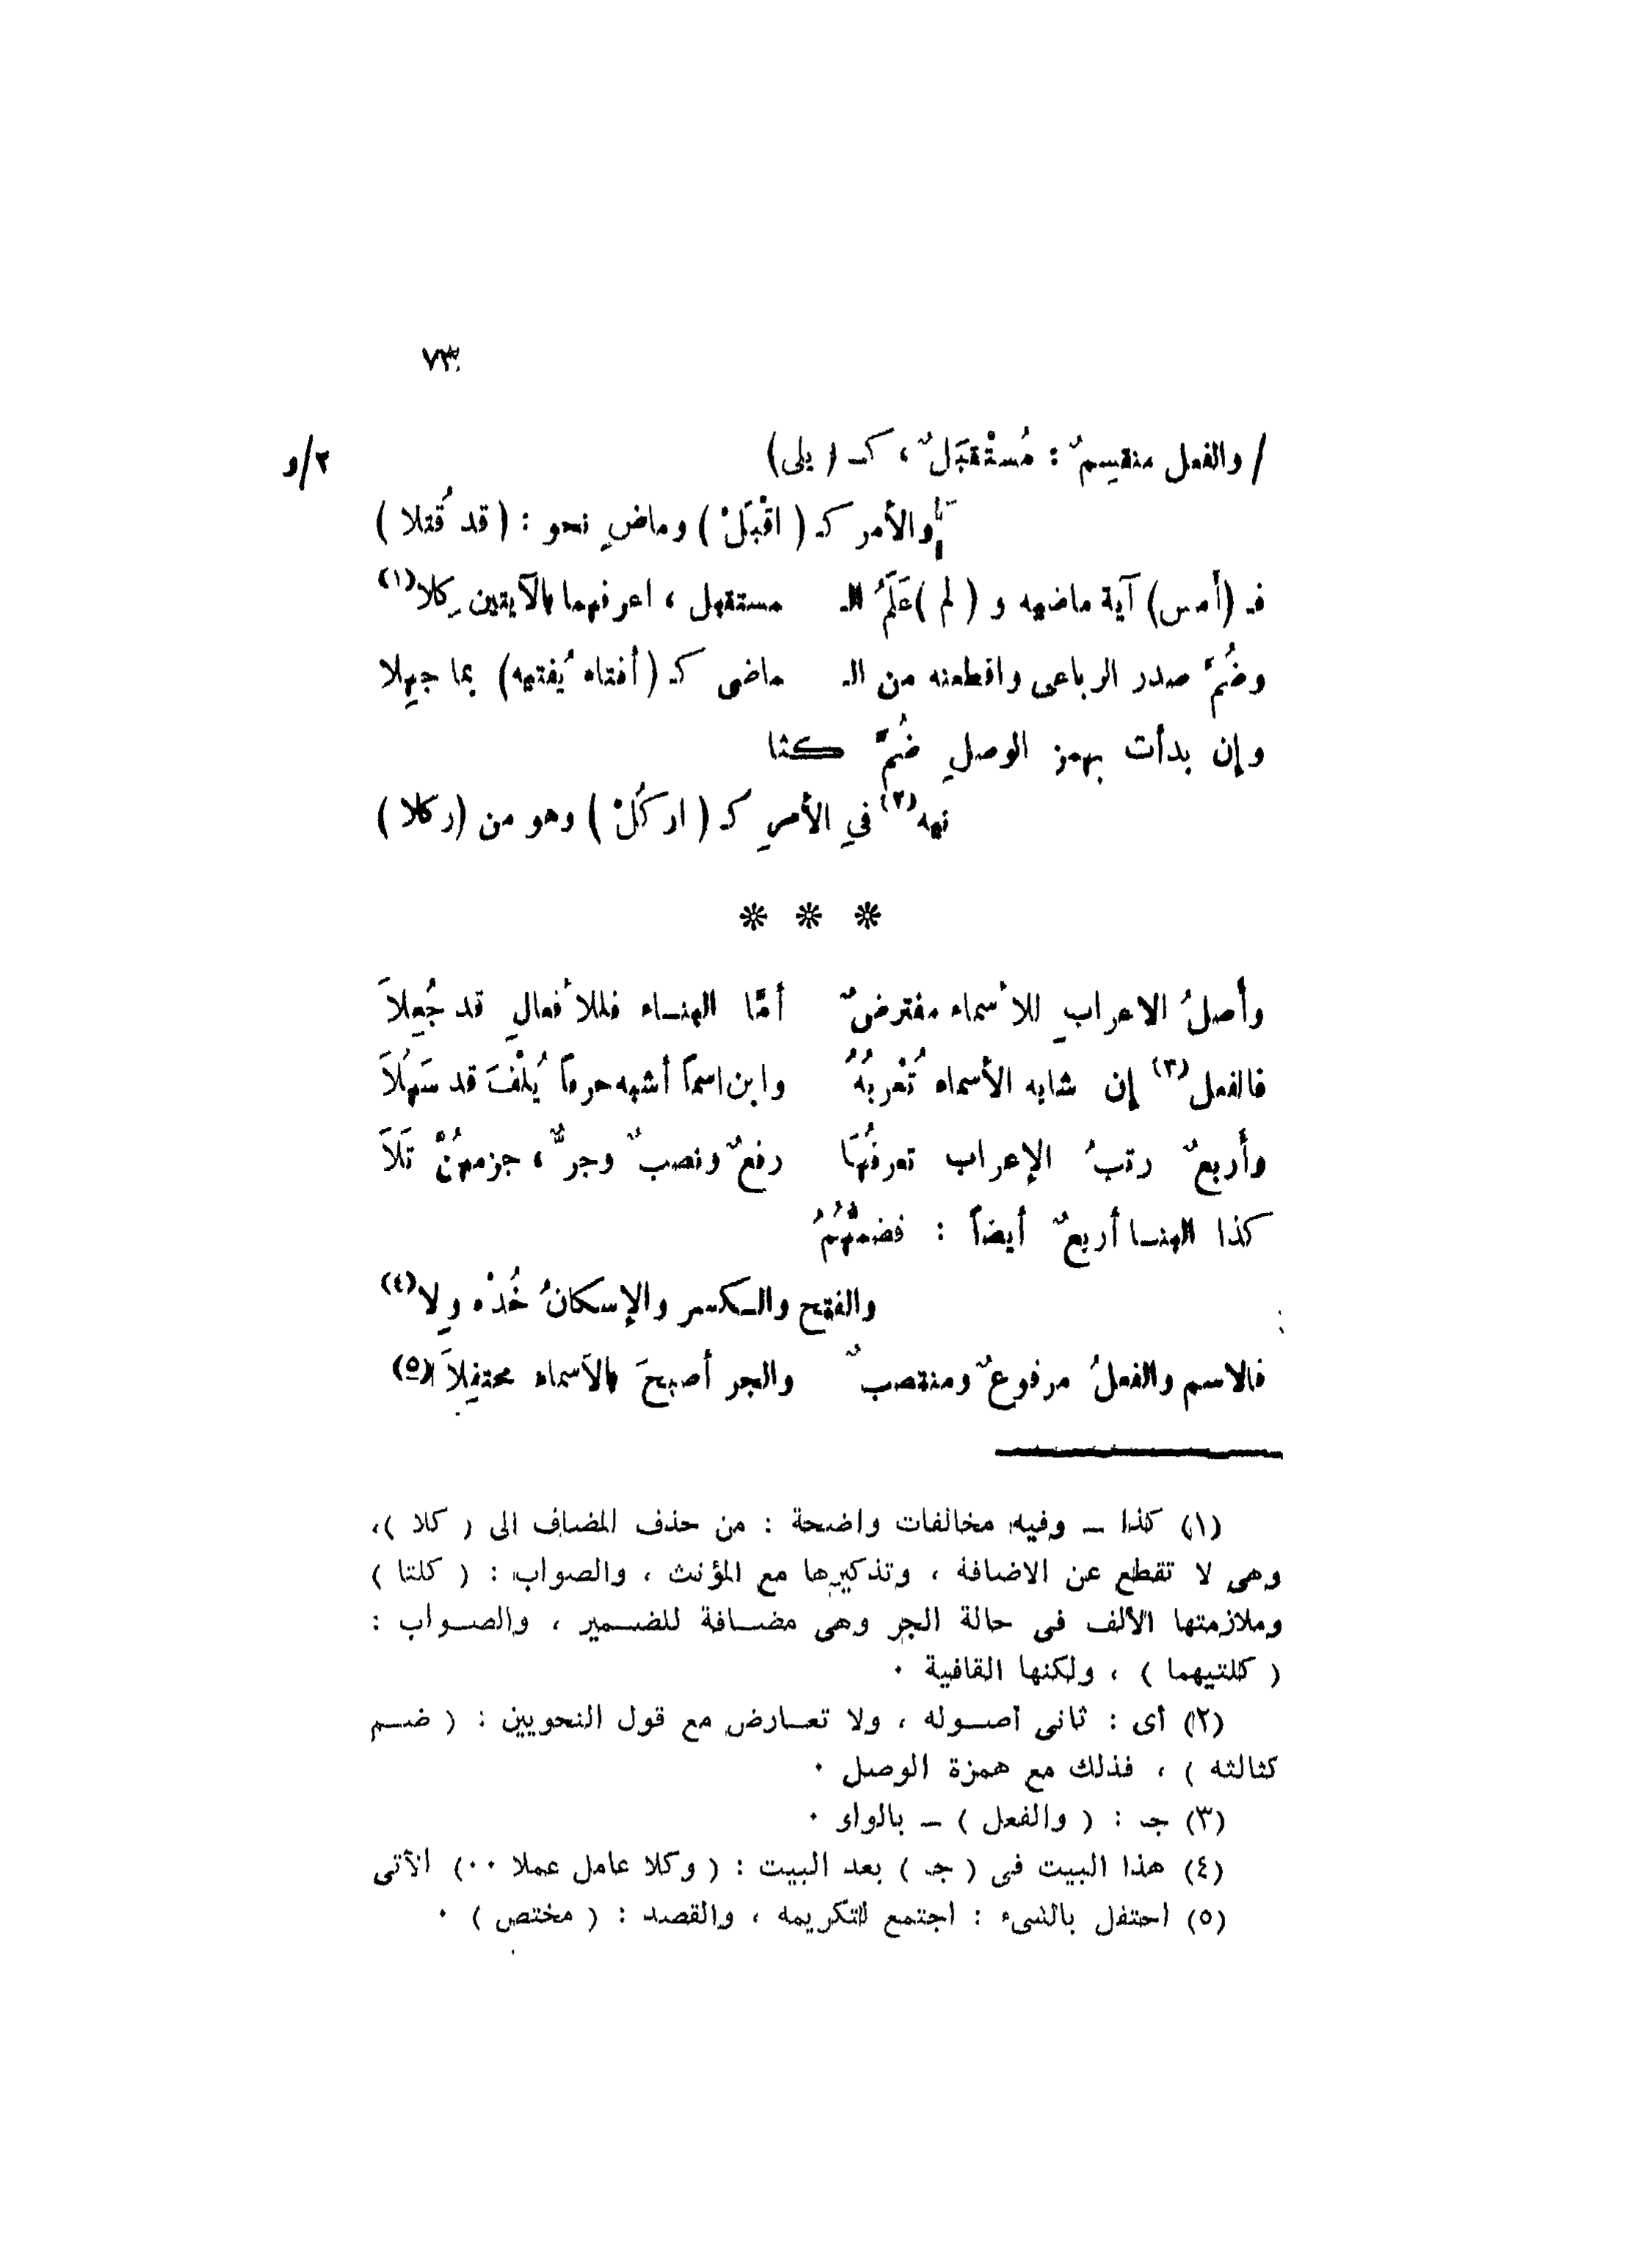 ٧٣
/ والفعل منقسِمٌ : مُسْتْقبَلٌ ، كـ ( يلى ) ٢/و
والأمر كـ ( اقْبَلْ ) وماضٍ نحو : ( قد قُتلا )
فـ (أمس) آية ماضيه و ( لم ) عَلَمُ الـ مستقبل ، اعرفهما بالآيتين كِلا(١)
وضُمَّ صدر الرباعى واقطعنه من الـ ماضى كـ (أفتاه يُفتيه) بما جهِلا
وإن بدأت بهمز الوصلِ ضُمَّ كثا
نيه(٢) في الأمرِ كـ ( اركُلْ ) وهو من (ركلا )
* * *
وأصلُ الاعرابِ للأسماء مفترضٌ أمّا البنـاء فللأفعالِ قد جُعِلاَ
فالفعل(٣) إن شابه الأسماء تُعْربُهُ وابن اسماً أشبه حرفاً يُلْفَ قد سَهُلاَ
وأربعٌ رتبُ الإعراب تعرفُهَا رفعٌ ونصبٌ وجرٌّ ، جزمهُنْ تَلاَ
كذا البنـا أربعٌ أيضاً : فضمُّهُمُ
والفتح والـكسر والإسكانُ خُذْه وِلا(٤)
فالاسم والفعلُ مرفوعٌ ومنتصبٌ والجر أصبحَ بالأسماء محتفِلاَ(٥)
(١) كذا – وفيه مخالفات واضحة : من حذف المضاف الى ( كلا )،
وهى لا تقطع عن الاضافة ، وتذكيرها مع المؤنث ، والصواب : ( كلتا )
وملازمتها الألف فى حالة الجر وهى مضـافة للضـمير ، والصـواب :
( كلتيهما ) ، ولكنها القافية .
(٢) أى : ثانى أصـوله ، ولا تعـارض مع قول النحويين : ( ضـم
كثالثه ) ، فذلك مع همزة الوصل .
(٣) جـ : ( والفعل ) – بالواو .
(٤) هذا البيت فى ( جـ ) بعد البيت : ( وكلا عامل عملا ..) الآتى
(٥) احتفل بالشىء : اجتمع لتكريمه ، والقصد : ( مختص ) .